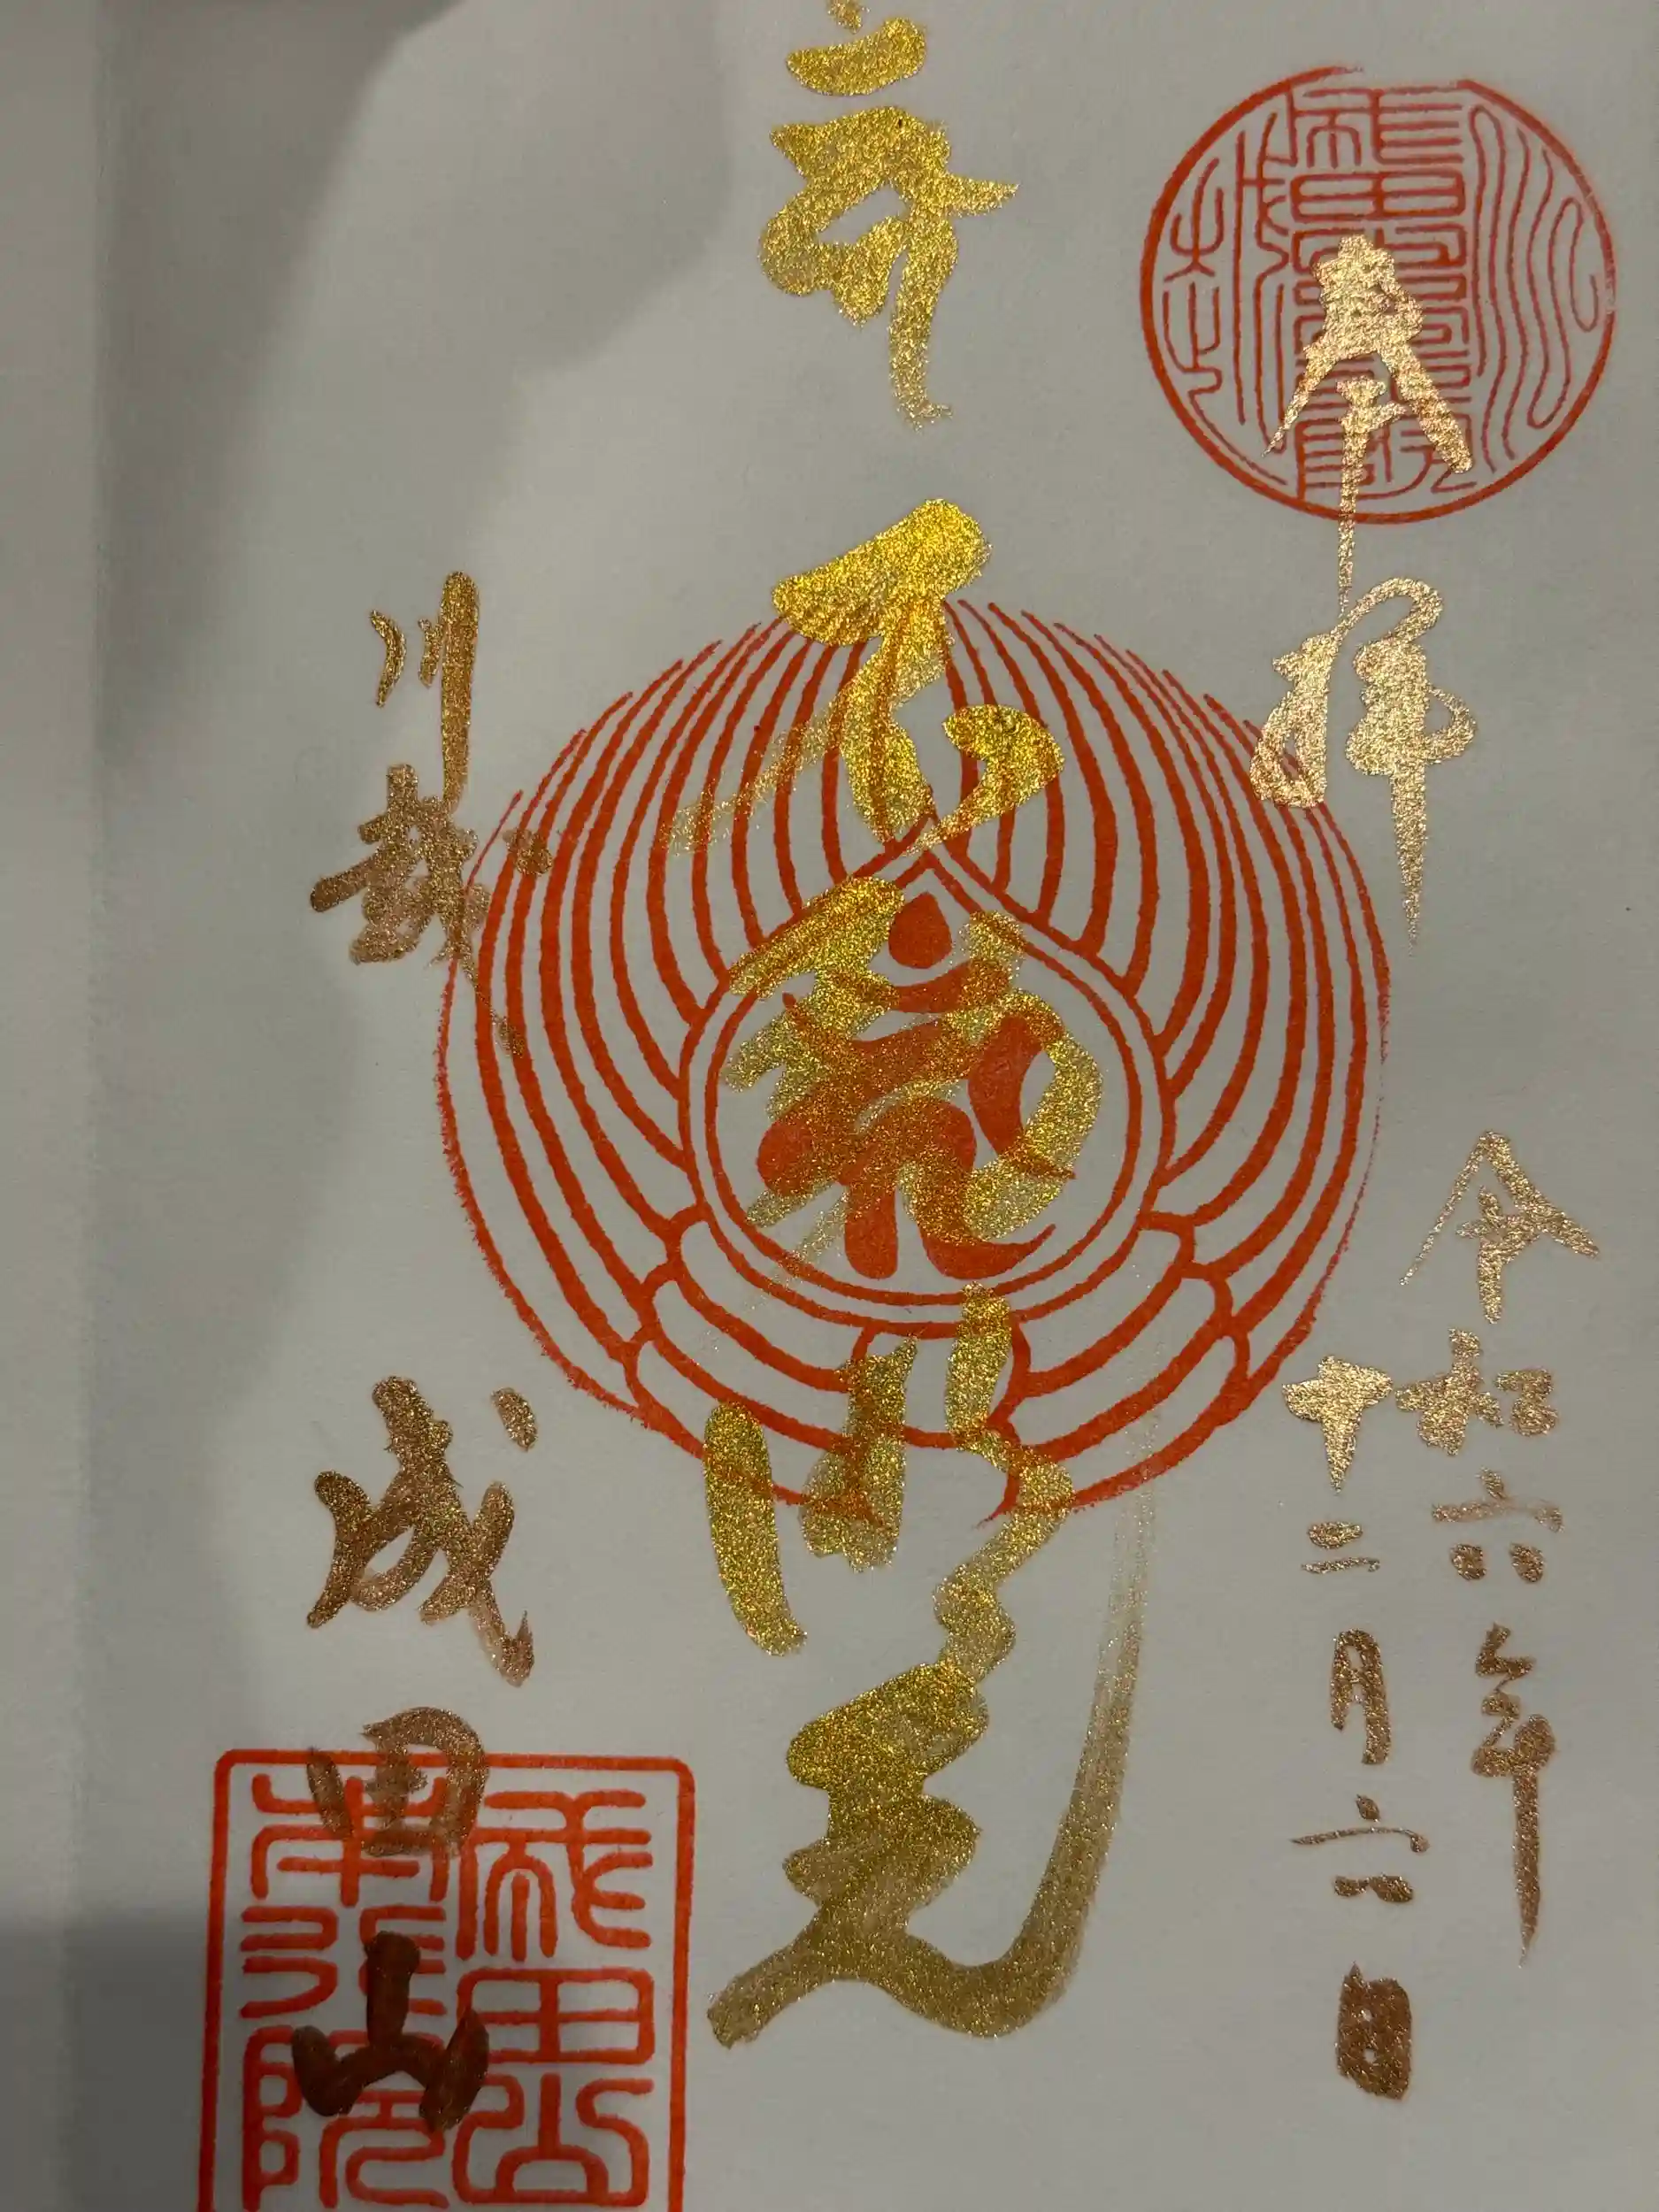 奉拝
令和六年
十二月六日
不動明王
川越
成田山
成田山
本行院